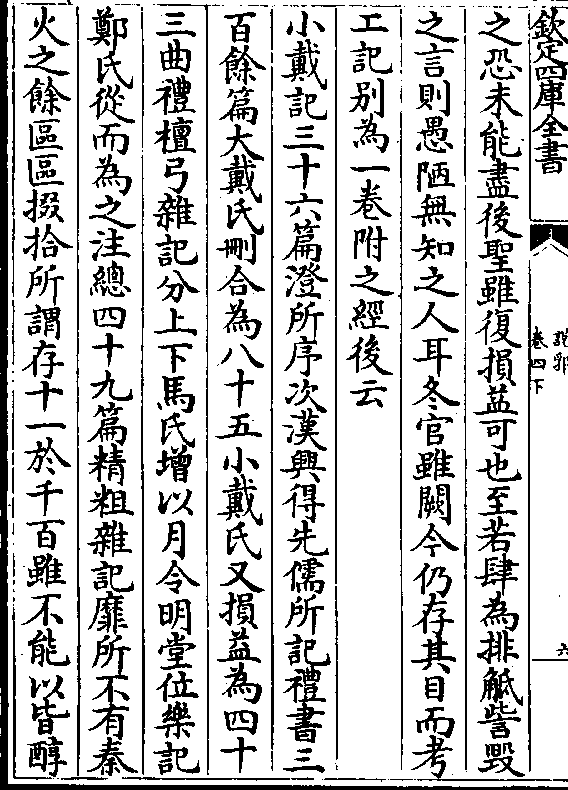 欽定四庫全書
說郛
卷四下
六
之恐未能盡後聖雖復損益可也至若肆為排觝訾毀
之言則愚陋無知之人耳冬官雖闕今仍存其目而考
工記別為一卷附之經後云
小戴記三十六篇澄所序次漢興得先儒所記禮書三
百餘篇大戴氏刪合為八十五小戴氏又損益為四十
三曲禮檀弓雜記分上下馬氏增以月令明堂位樂記
鄭氏從而為之注總四十九篇精粗雜記靡所不有秦
火之餘區區掇拾所謂存十一於千百雖不能以皆醇